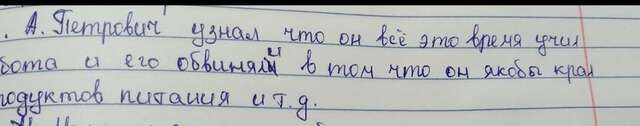 . А. Петрович узнал что он всё это время учил
бота и его обвиняли в том что он якобы крал
родуктов питания и т.д.